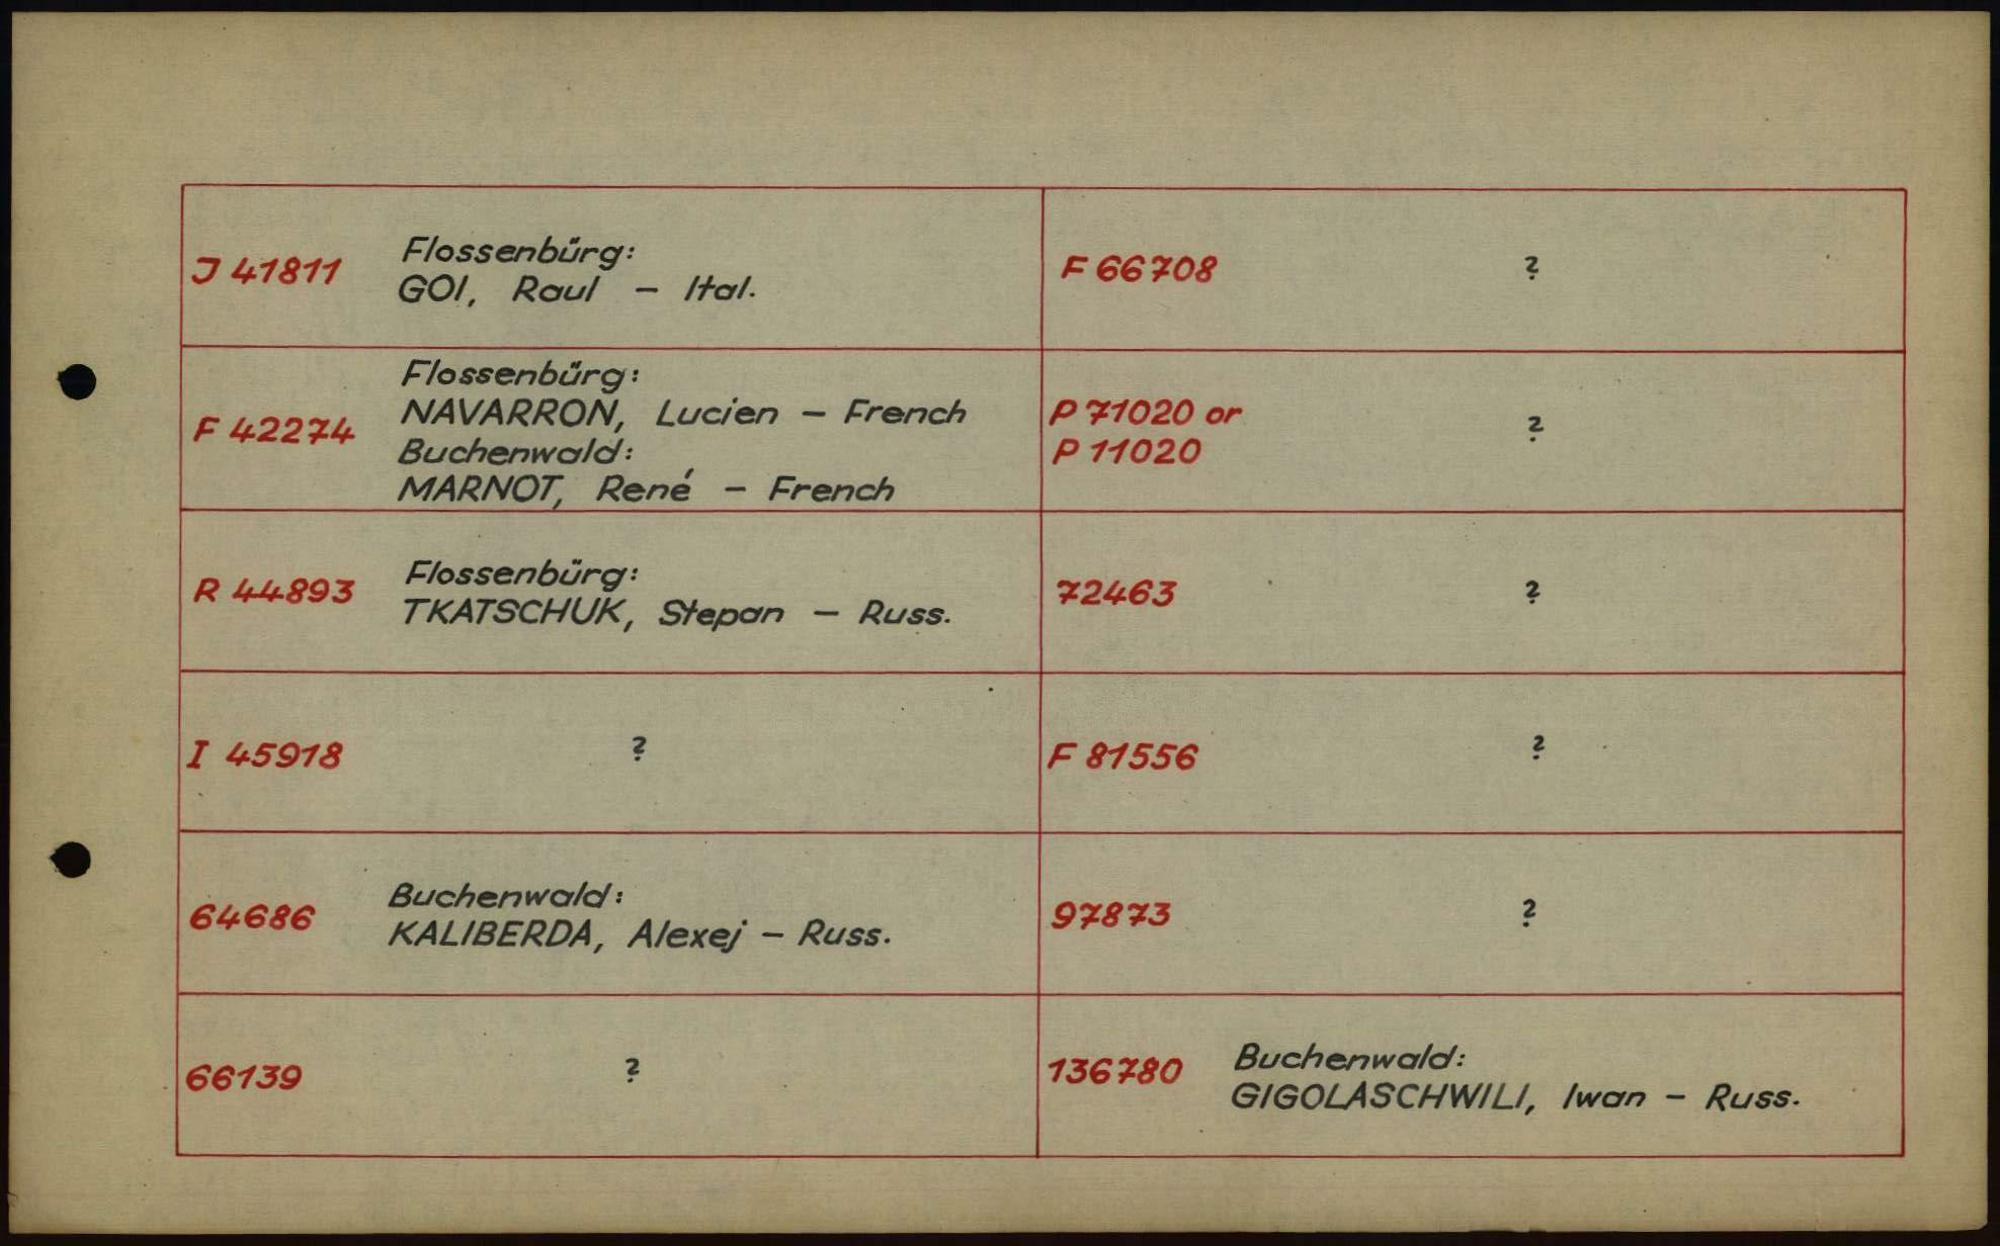 J 41811
Flossenbürg:
GOI, Raul – Ital.
F 66708
?
F 42274
Flossenbürg:
NAVARRON, Lucien – French
Buchenwald:
MARNOT, René – French
P 71020 or
P 11020
?
R 44893
Flossenbürg:
TKATSCHUK, Stepan – Russ.
72463
?
I 45918
?
F 81556
?
64686
Buchenwald:
KALIBERDA, Alexej – Russ.
97873
?
66139
?
136780
Buchenwald:
GIGOLASCHWILI, Iwan – Russ.